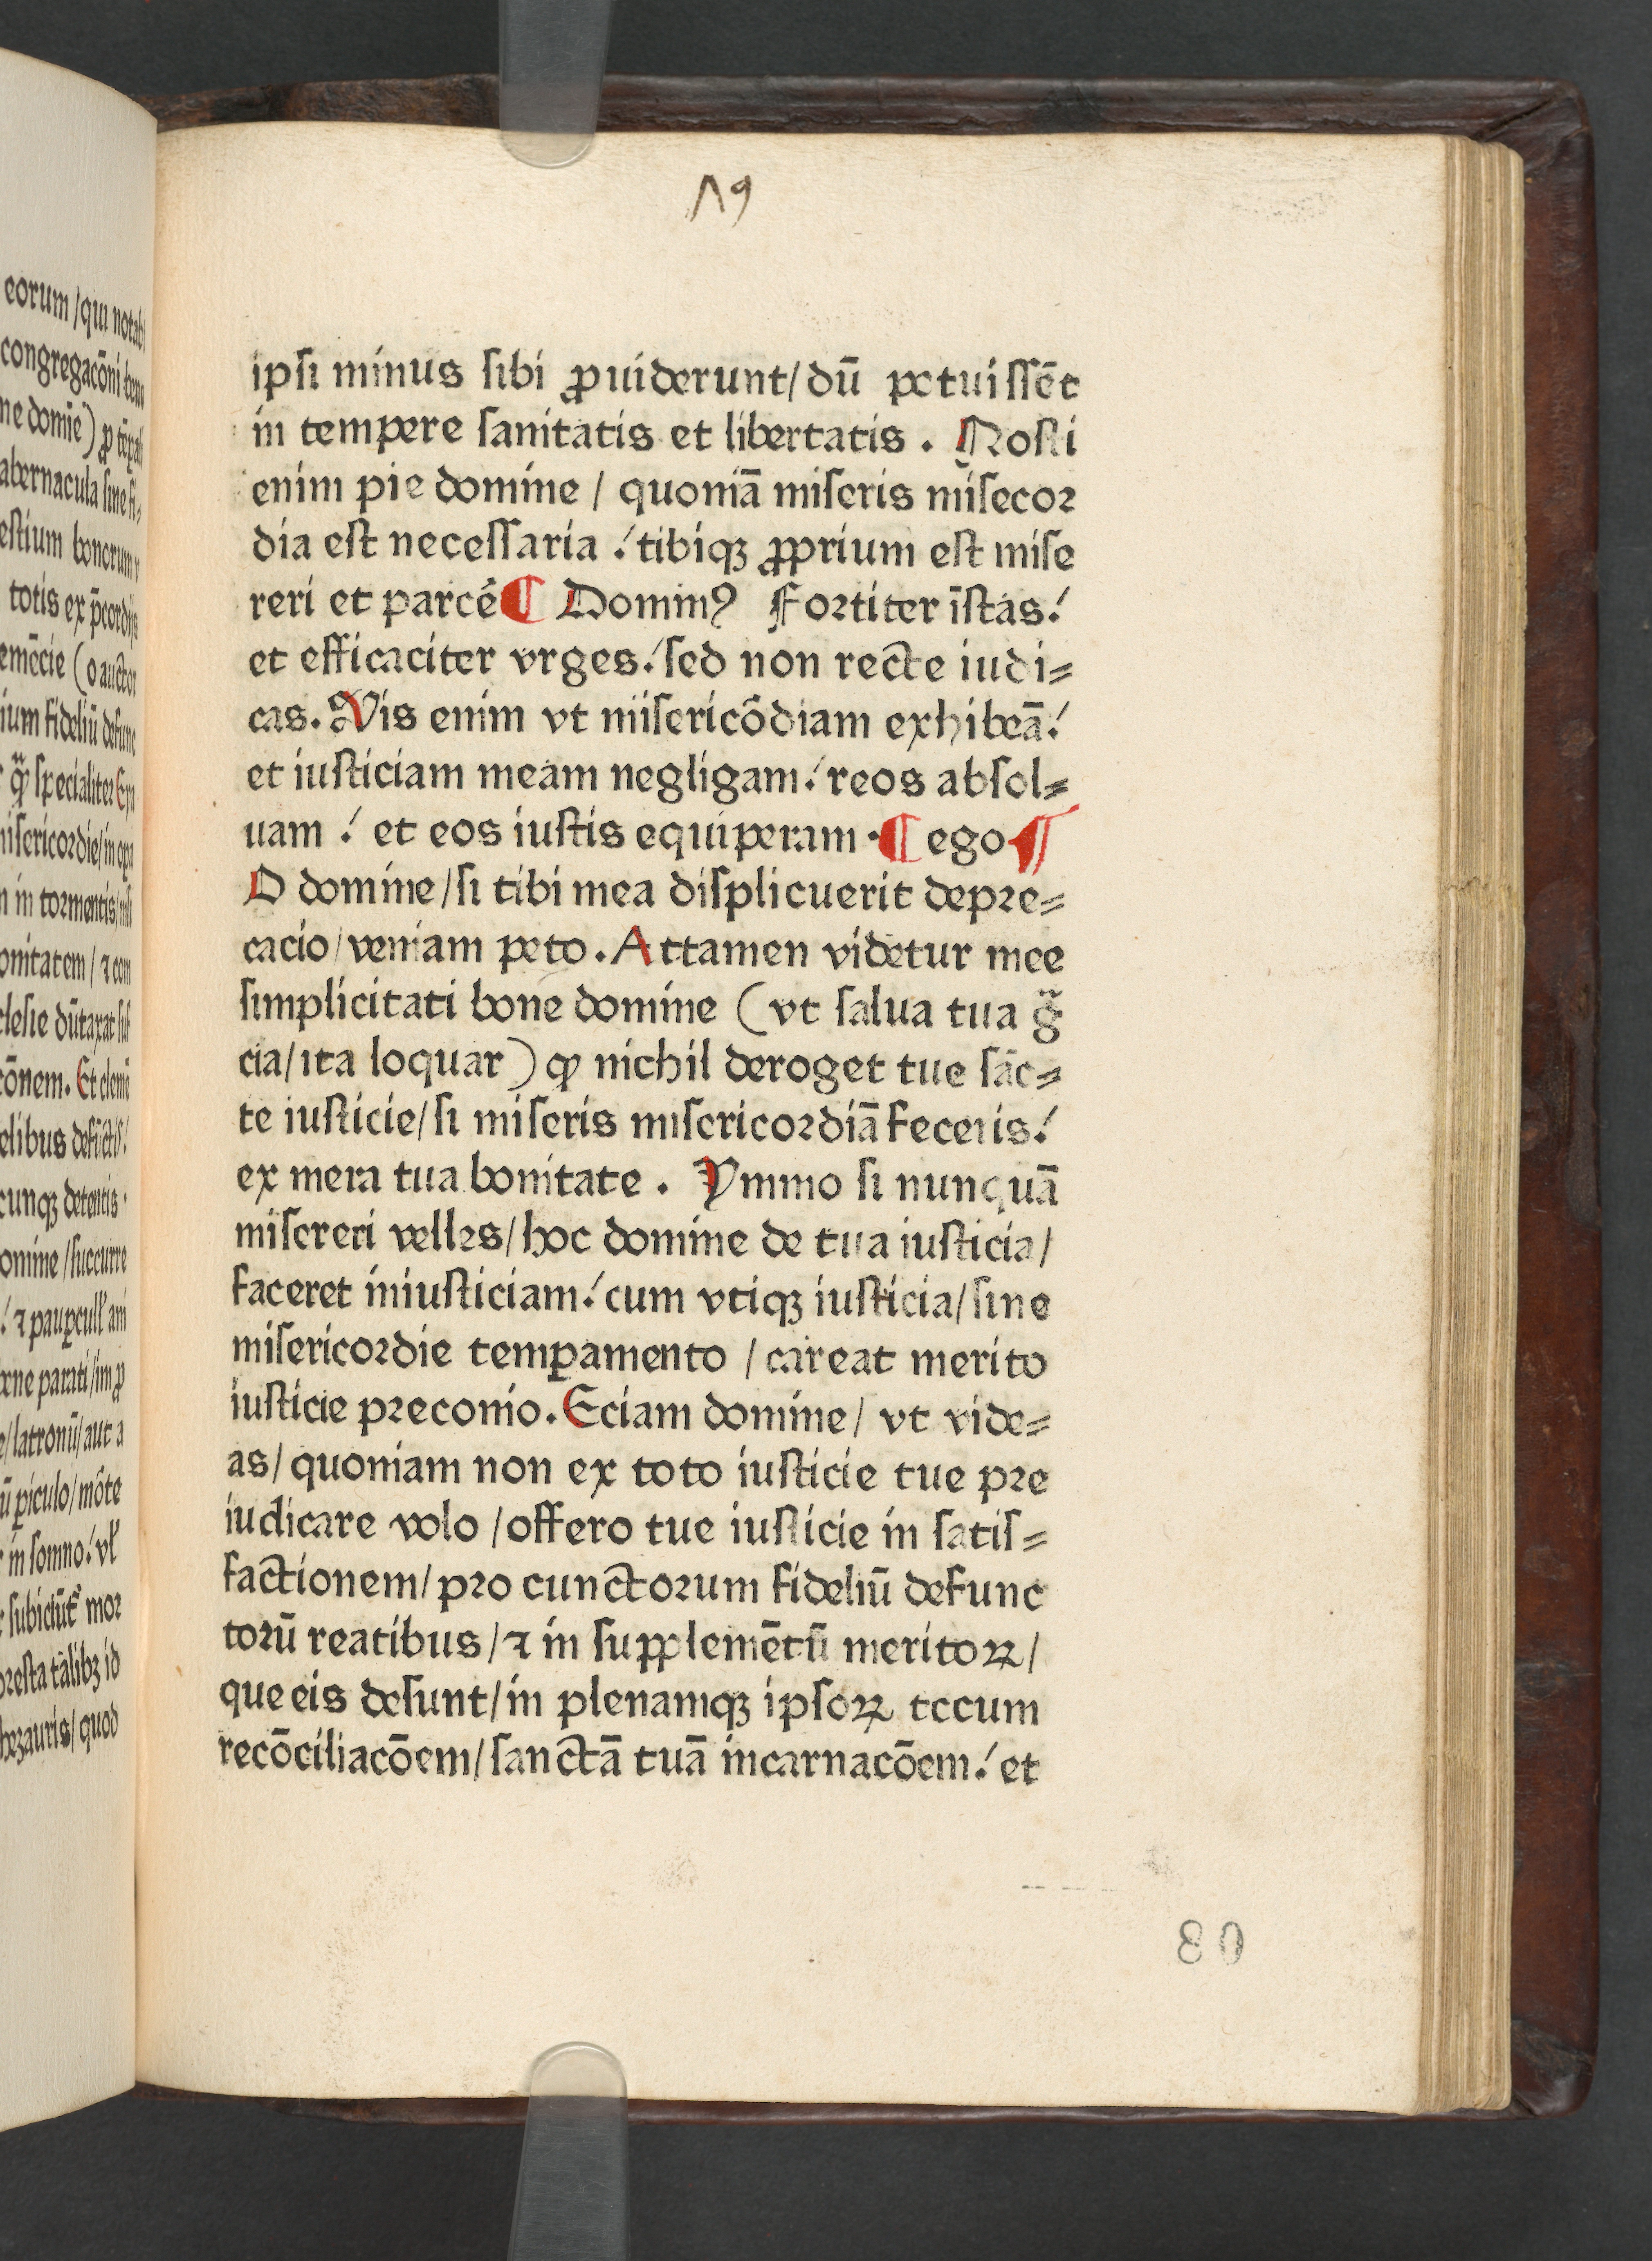 Λ9
ipsi minus sibi ꝓuiderunt/dū potuissēt
in tempore sanitatis et libertatis. Nosti
enim pie domine / quoniā miseris misecor
dia est necessaria ! tibiqꝫ ꝓprium est mise
reri et parcē ¶ Dominꝰ Fortiter īstas!
et efficaciter vrges! sed non recte iudi⸗
cas. Vis enim vt misericōdiam exhibeā!
et iusticiam meam negligam! reos absol⸗
uam ! et eos iustis equiperam · ¶ ego ¶
O domine/si tibi mea displicuerit depre⸗
cacio/veniam peto. Attamen videtur mee
simplicitati bone domine (vt salua tua g̃
cia/ita loquar) ꝙ nichil deroget tue sāc⸗
te iusticie/si miseris misericordiā feceris!
ex mera tua bonitate. Ymmo si nunquā
misereri velles/hoc domine de tua iusticia/
faceret iniusticiam! cum vtiqꝫ iusticia/sine
misericordie temꝑamento / careat merito
iusticie preconio. Eciam domine/ vt vide⸗
as/ quoniam non ex toto iusticie tue pre
iudicare volo /offero tue iusticie in satis⸗
factionem/pro cunctorum fideliū defunc
torū reatibus/⁊ in supplemētū meritoꝝ/
que eis desunt/in plenamqꝫ ipsoꝝ tecum
recōciliacōem/sanctā tuā incarnacōem! et